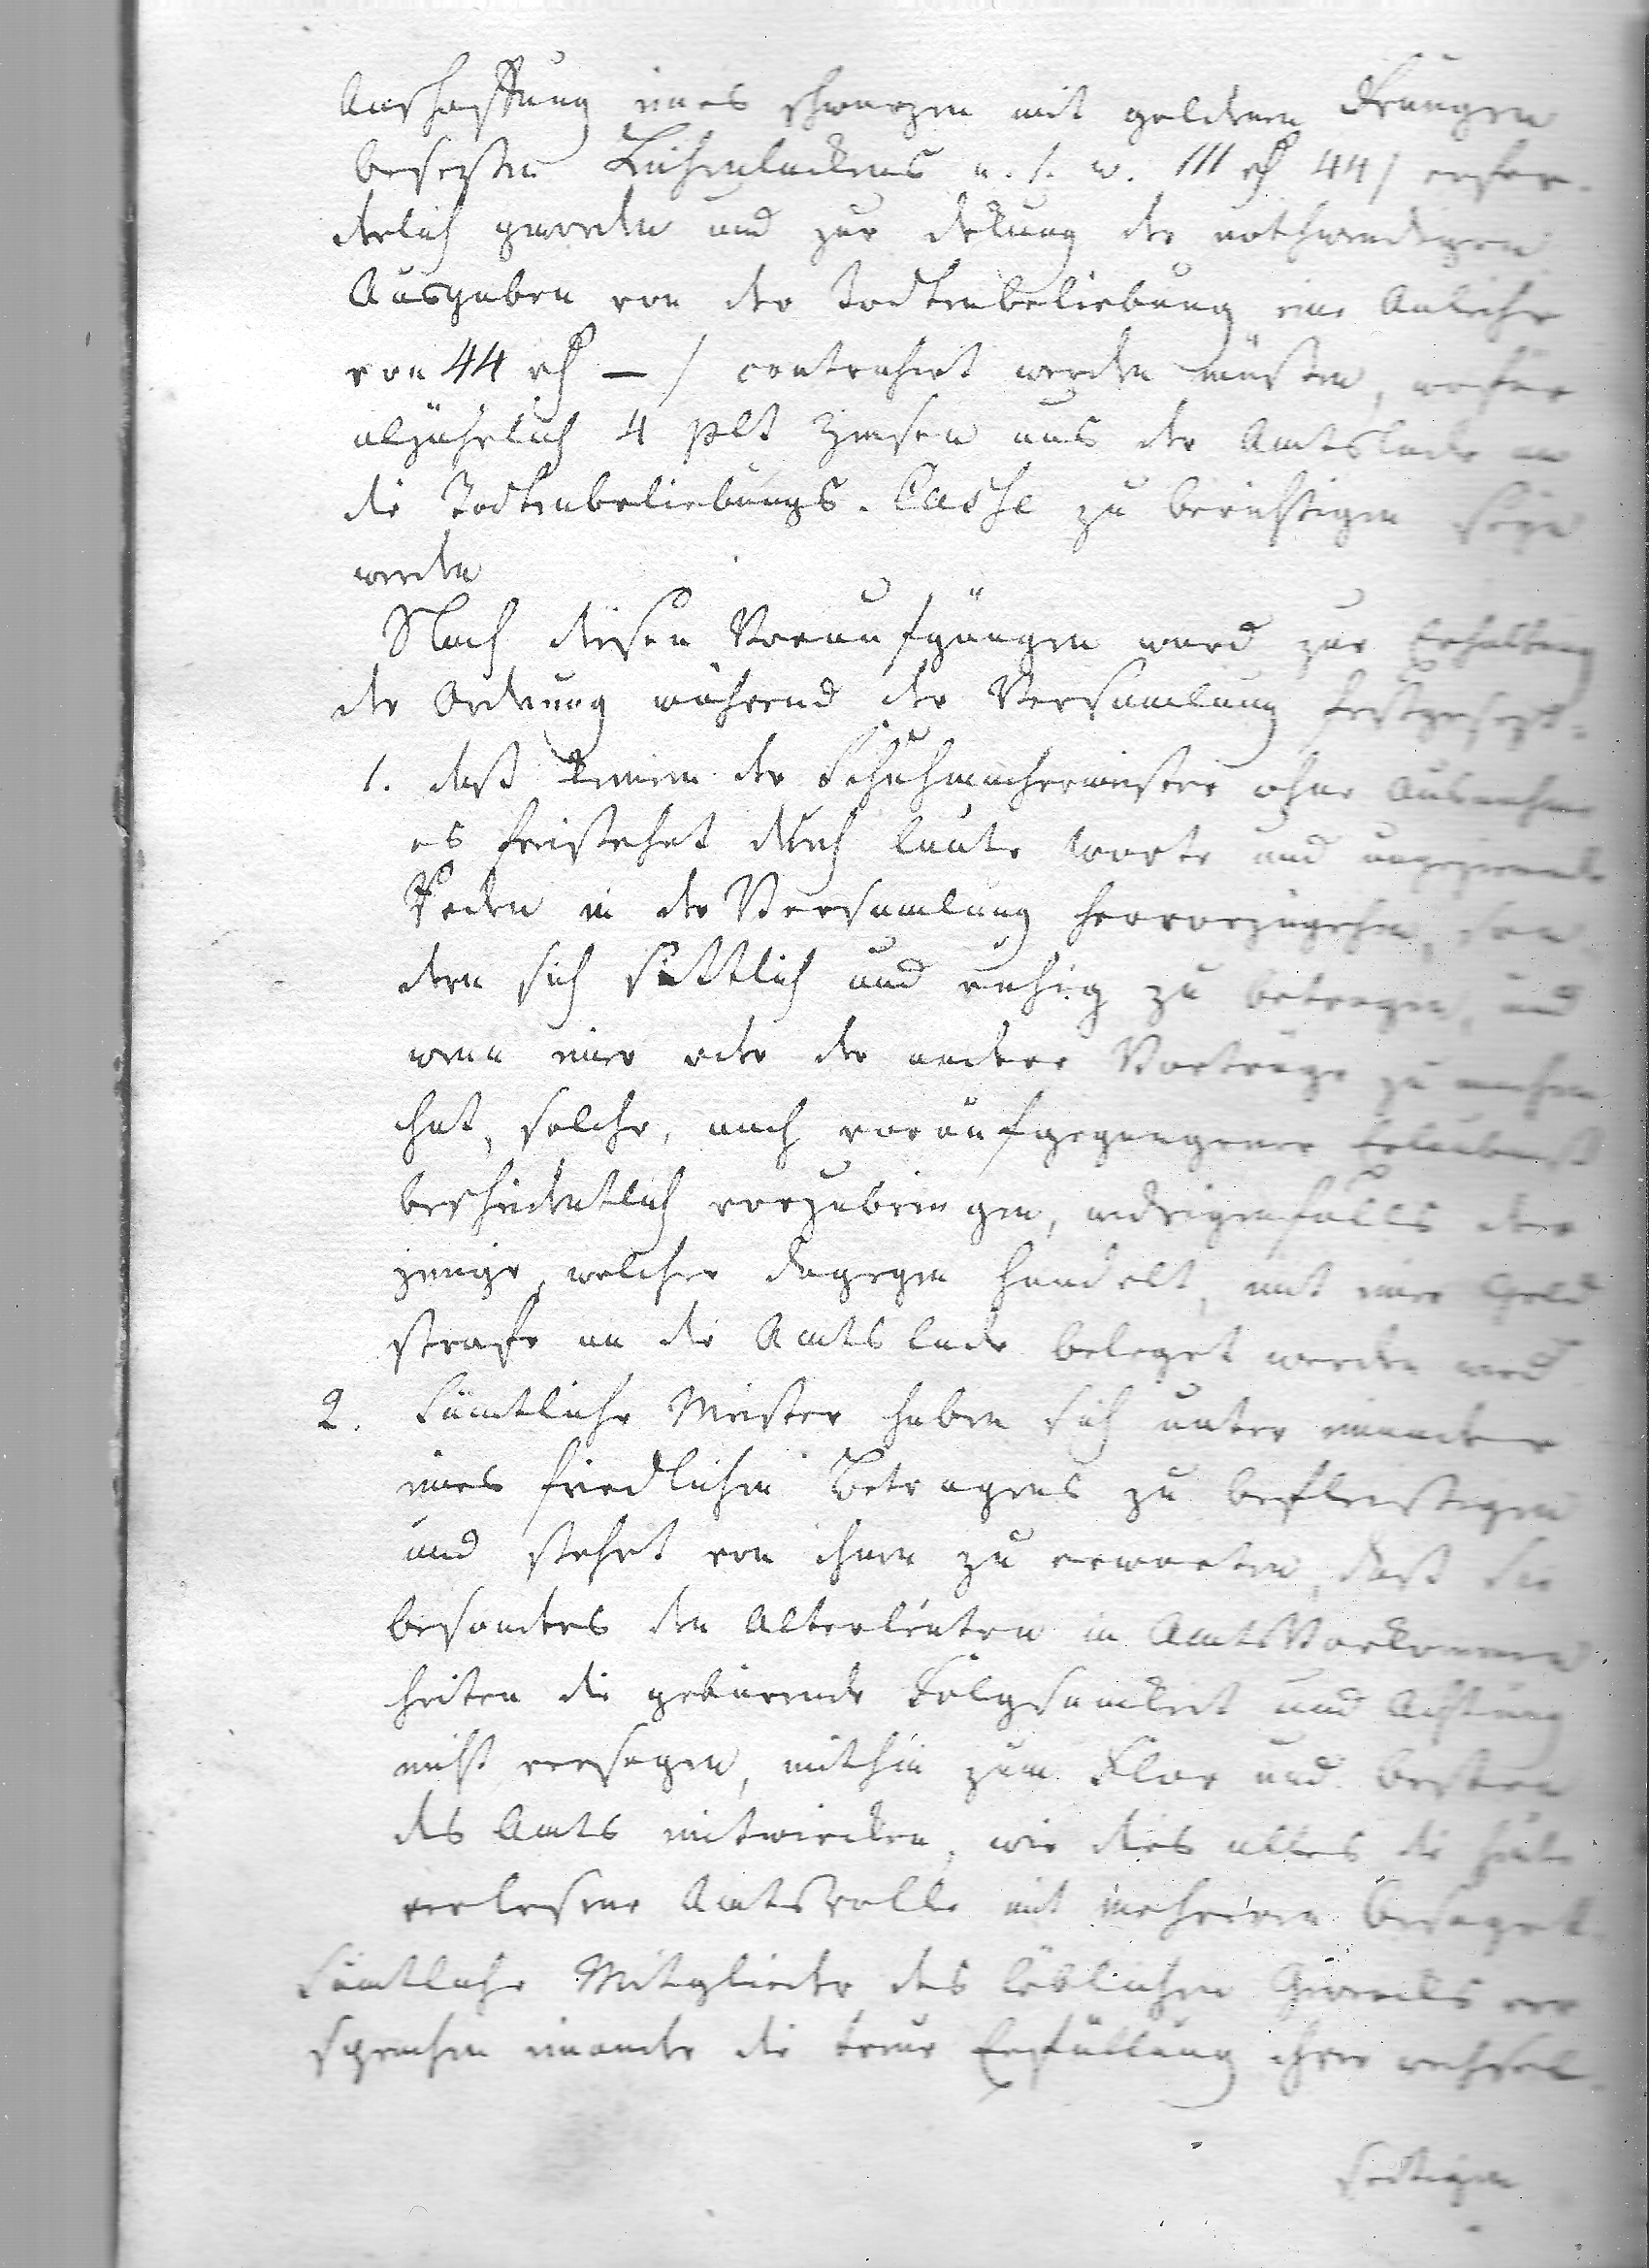 Anschaffung eines schwarzen mit goldenen Frangen
besezten Leichenlackens u. s. w. 111 rℳ 44 ß erfor-
derlich geworden und zur dekung der nothwendigen
Ausgaben von der Todtenbeliebung eine Anleihe
von 44 rℳ — ß contrahirt werden müßen, wofür
aljährlich 4 pCt Zinsen aus der Amtslade an
die Todtenbeliebungs-Casse zu berichtigen seyn
werden
Nach diesen Voraufgängen ward zur Erhaltung
der Ordnung während der Versamlung festgesezt.
1. daß keinem der Schuhmachermeister ohne Ausnahme
es freistehet durch laute Worte und ungeziemende
Reden in der Versamlung hervorzugehen, son
dern sich sittlich und ruhig zu betragen, und
wenn einer oder der andere Vorträge zu machen
hat, solche, nach voraufgegangener Erlaubniß
bescheidentlich vorzubringen, widrigenfalls der
jenige, welcher dagegen handelt, mit einer Geld
strafe an die Amtslade beleget werden wird
2. Sämtliche Meister haben sich unter einander
eines friedlichen Betragens zu befleißigen
und stehet von ihnen zu erwarten, daß sie
besonders den Alterleuten in Amts Vorkommen
heiten die gebürende Folgsamkeit und Achtung
nicht versagen, mithin zum Flor und besten
des Amts mitwirken, wie dies alles die heute
verlesene Amtsrolle mit mehreren besaget.
Sämtliche Mitglieder des löblichen Gewerks ver
sprechen einander die treue Erfüllung ihrer wechsel-
seitigen